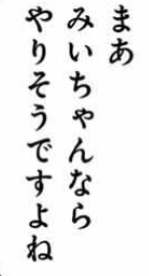 まあ
みいちゃんなら
やりそうですよね